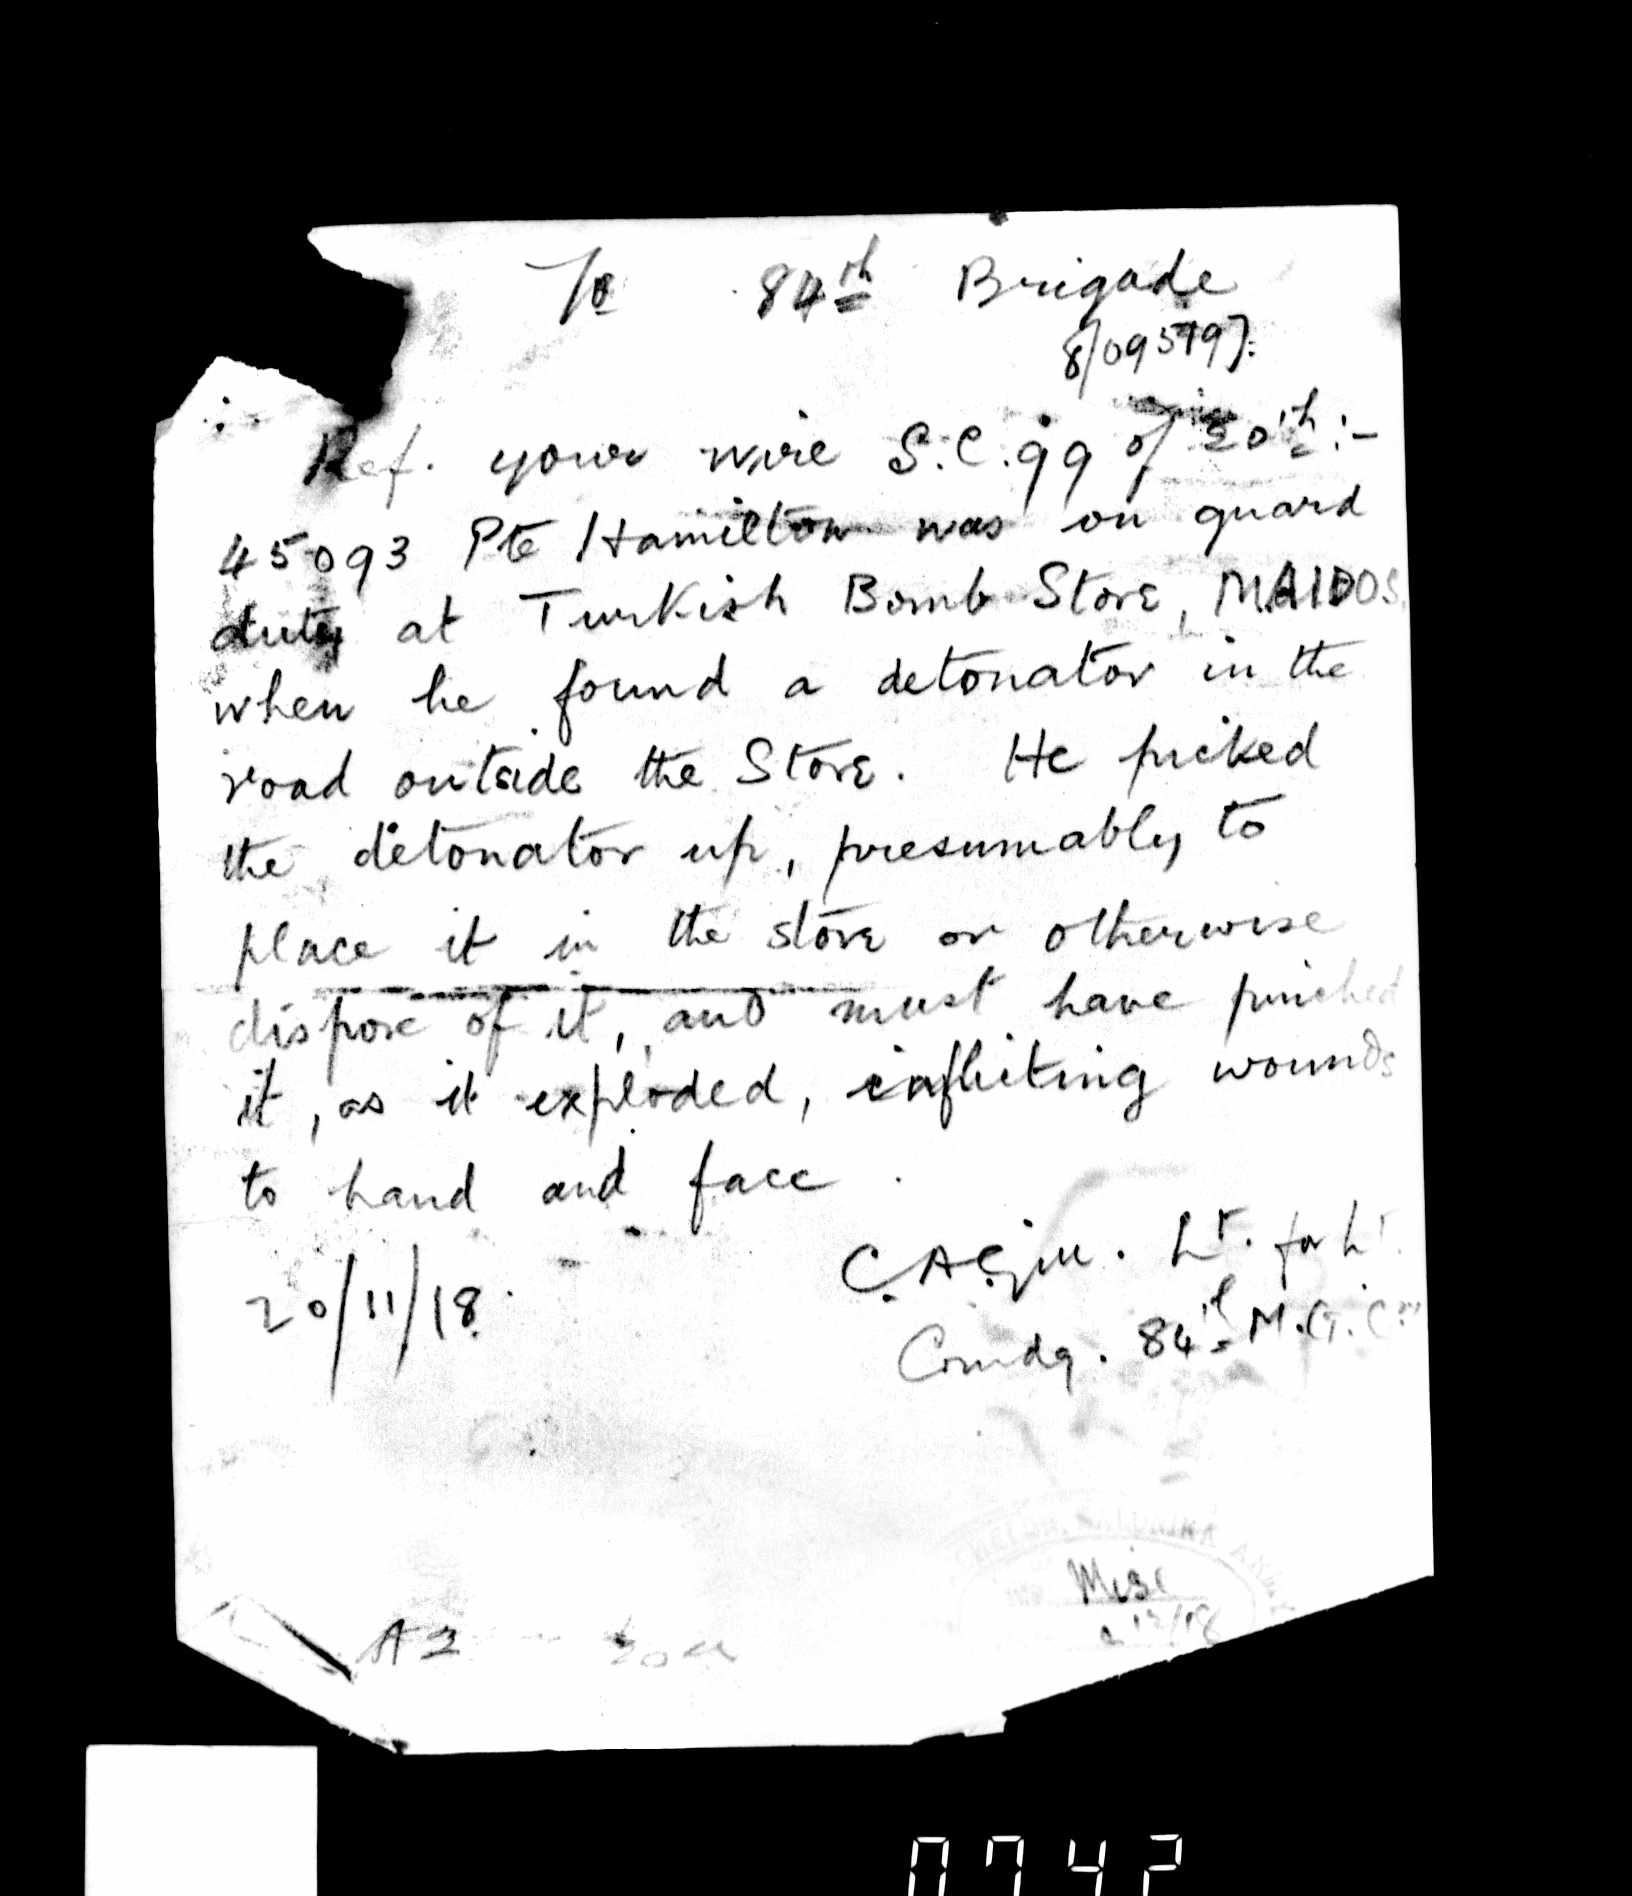 To 84th Brigade
8/095797.
Ref. your wire S.C.99 of 20th :-
45093 Pte Hamilton was on guard
duty at Turkish Bomb Store, MAIDOS,
when he found a detonator in the
road outside the Store. He picked
the detonator up, presumably to
place it in the store or otherwise
dispose of it, and must have pinched
it, as it exploded, inflicting wounds
to hand and face.
20/11/18.
Lt. for Lt.
Comdg. 84th M.G.Coy
Misc
12/18
A2
0742